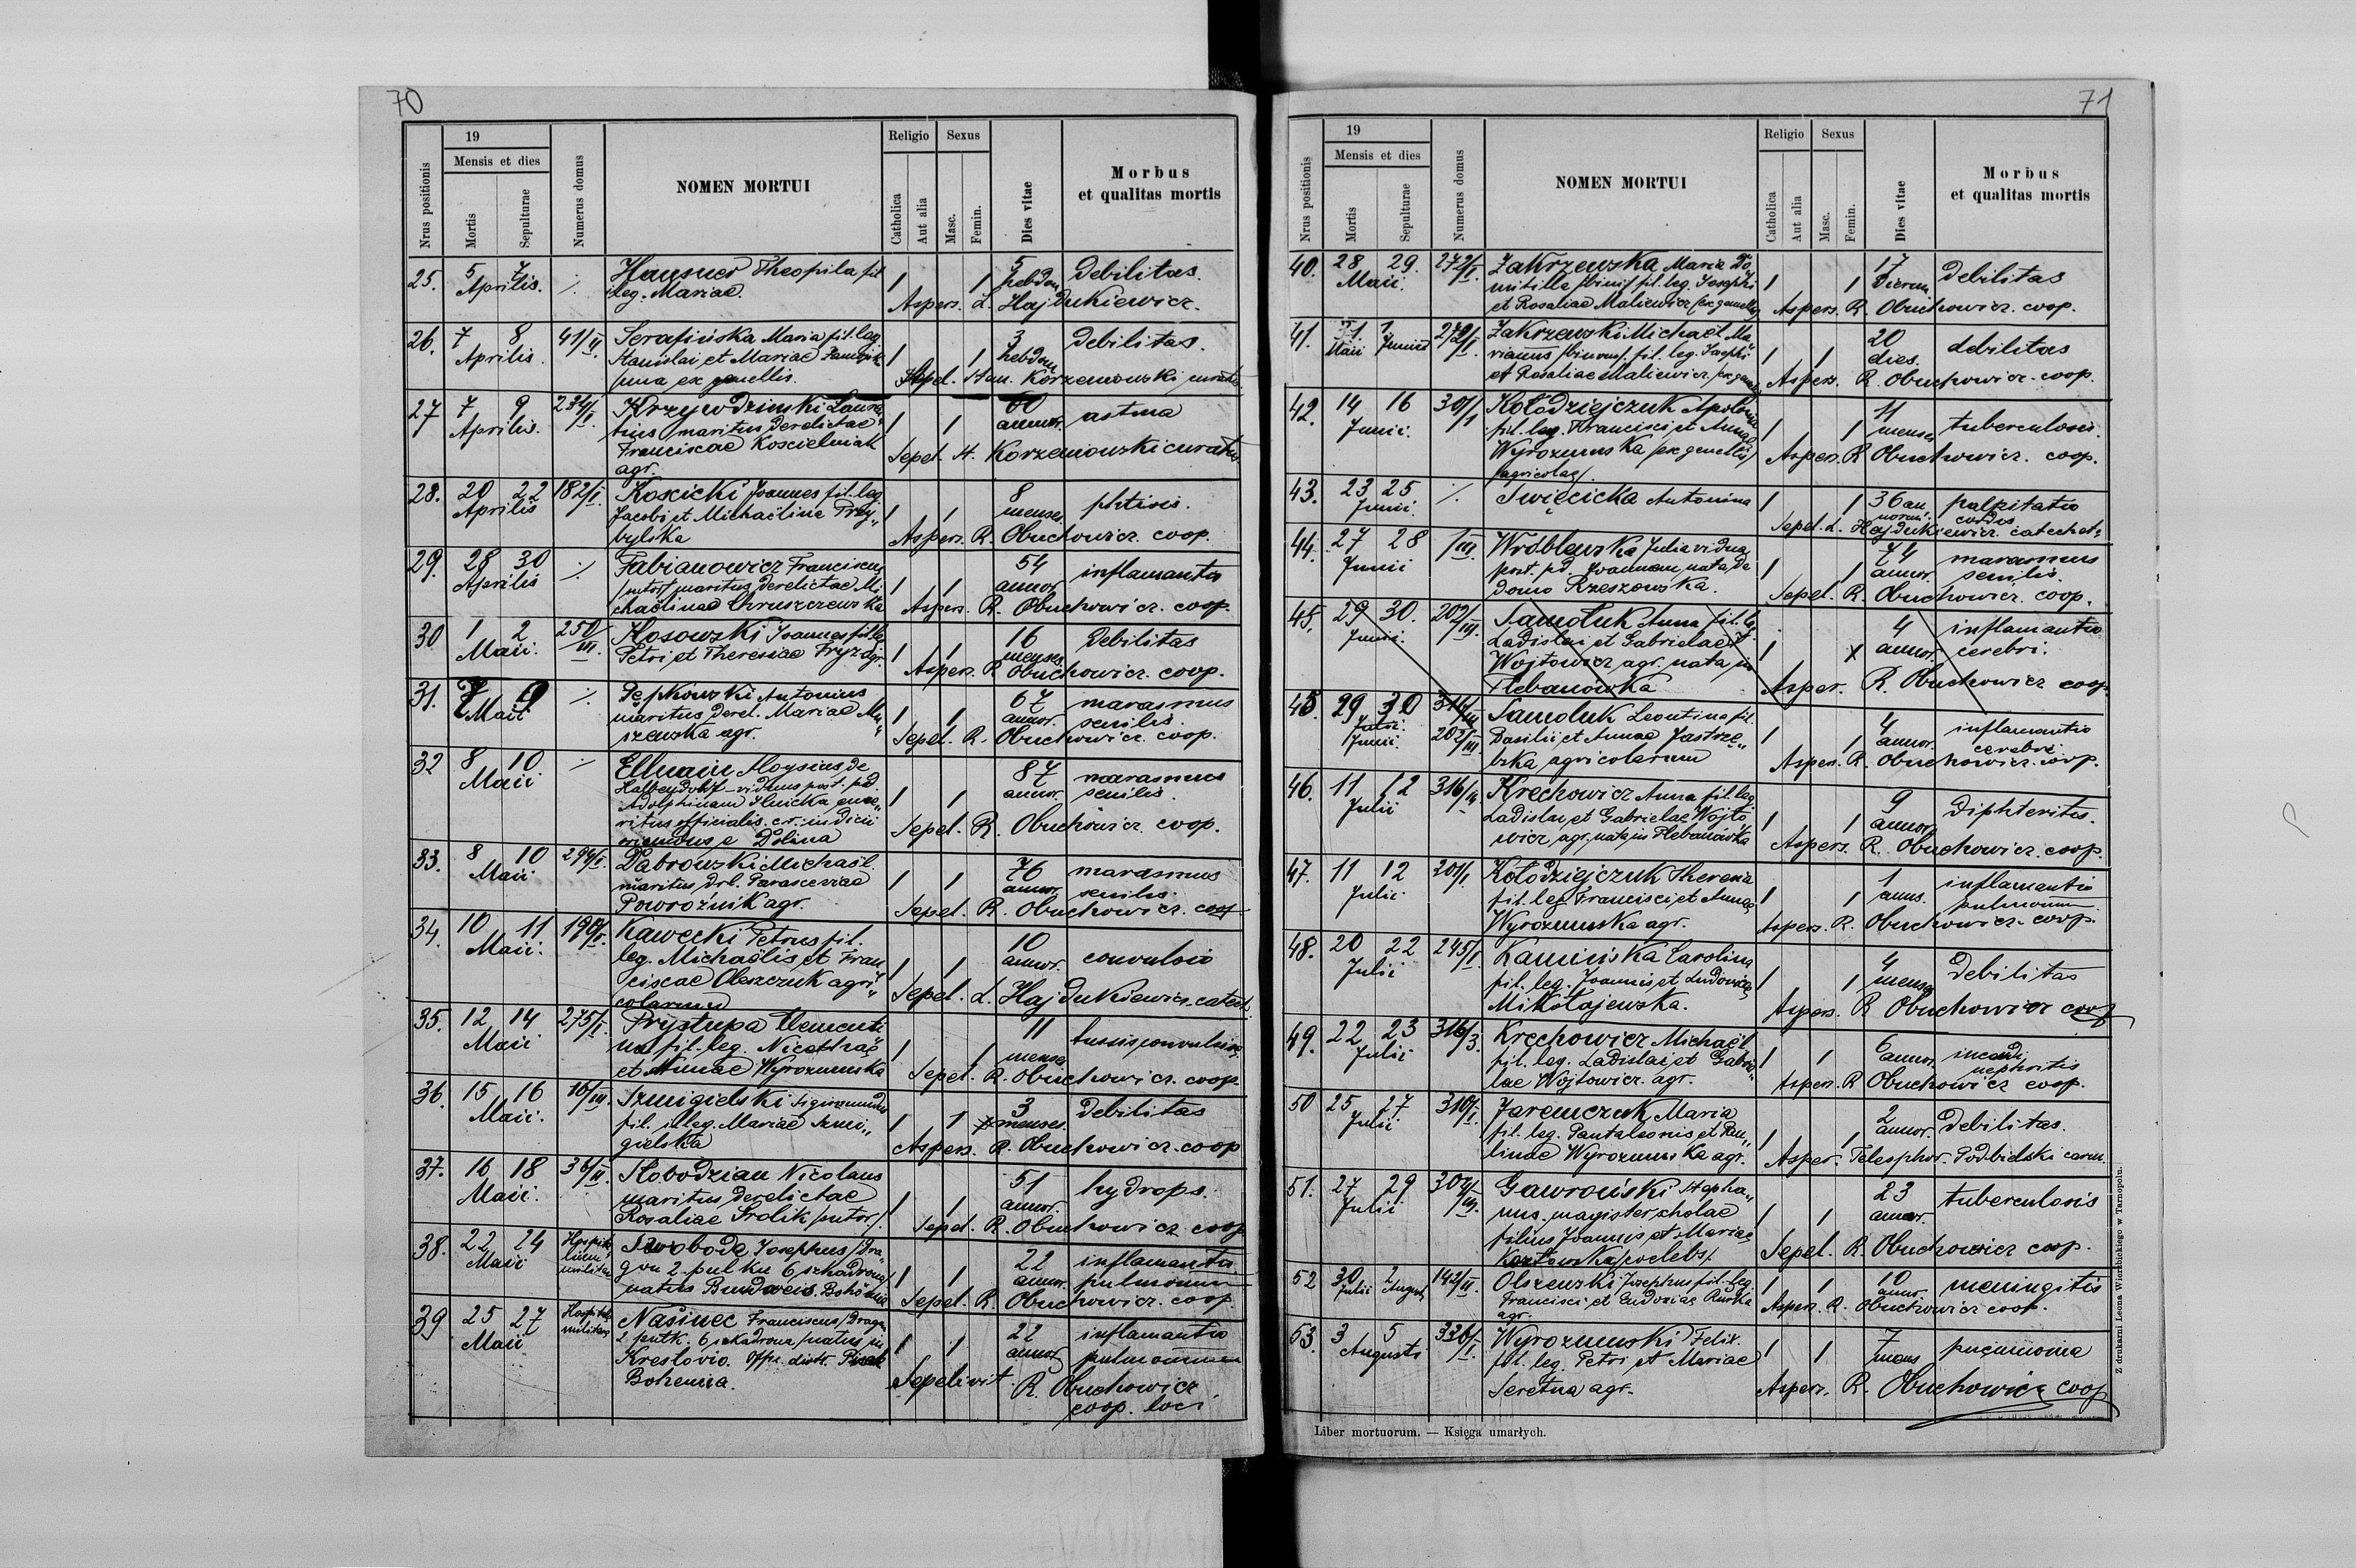 70
Nrus positionis
19
Mensis et dies
Mortis
Sepulturae
Numerus domus
NOMEN MORTUI
Religio
Catholica
Aut alia
Sexus
Masc.
Femin.
Dies vitae
Morbus
et qualitas mortis
25. 5 7 Aprilis. ·/.
Hausner Theopila fil
illeg. Mariae.
1 1 5 hebdom debilitas.
Aspers. L. Hajdukiewicz.
26. 7 8 Aprilis. 41/II.
Serafińska Maria fil. leg.
Stanislai et Mariae
/una ex gemellis.
1 1 3 hebdom debilitas.
Sepel. Stan. Korzeniowski curatus
27 7 9 Aprilis. 234/I.
Krzywdzinski Lauren„
tius maritus derelictae
Franciscae Koscielniak
agr.
1 1 60 annor. astma
Sepel. St. Korzeniowski curatus
28. 20 22 Aprilis 182/I.
Koscicki Joannes fil. leg.
Jacobi et Michaëlina Przy„
bylska
1 1 8 menses phtisis.
Aspers. R. Obuchowicz. coop.
29. 28 30 Aprilis ·/.
Fabianowicz Franciscus
/sutor/ maritus derelictae Mi
chaëlinae Chruszczewska
1 1 54 annor inflamantio
Aspers. R. Obuchowicz. coop.
30 1 2 Maii. 250/III.
Kosowski Joannes fil. leg
Petri et Theresiae Fryz agr.
1 1 16 menses debilitas
Aspers. R Obuchowicz. coop.
31. 7 9 Maii ·/.
Pępkowski Antonius
maritus derel. Mariae Mu„
szewska agr.
1 1 67 annor. marasmus senilis.
Sepel. R. Obuchowicz. coop.
32 8 10 Maii ·/.
Ellnain Aloysius, de
viduus post. pd.
Adolphinam Ilnicka eme„
ritus officialis. cr. iudicii
oriundus e Dolina
1 1 87 annor. marasmus senilis.
Sepel. R. Obuchowicz. coop.
33. 8 10 Maii 294/I.
Dąbrowski Michaël
maritus drl. Parasceviae
Powroźnik agr.
1 1 76 annor. marasmus senilis.
Sepel. R. Obuchowicz. coop
34. 10 11 Maii. 190/I.
Kawecki Petrus fil.
leg. Michaëlis et Fran
ciscae Oleszczuk agri„
colarum
1 1 10 annor. convulsio
Sepel. L. Hajdukiewicz. catech.
35. 12 14 Maii 275/I.
Prystupa Clementi
na fil. leg. Nicolai
et Annae Wyrozumska
1 1 11 menses tussis convulsiva.
Sepel. R. Obuchowicz. coop.
36. 15 16 Maii. 10/III.
Szmigielski Sigismundus
fil. illeg. Mariae Szmi„
gielska
1 1 3 menses. debilitas
Aspers. R. Obuchowicz. coop
37. 16 18 Maii. 36/II.
Kobodzian Nicolaus
maritus derelictae
Rosaliae Srolik /sutor/.
1 1 51 annor. hydrops.
Sepel. R. Obuchowicz coop
38. 22 24 Maii Hospita„ lium militare
Swoboda Josephus /Dra„
gon 2. pulku 6 szkadrony/
natus Budweis. Bohemia
1 1 22 annor. inflamantio pulmonum
Sepel. R. Obuchowicz. coop.
39 25 27 Maii Hospitale militare
Našinec Franciscus /Dragon
2 pułk. 6 szkadrona/ natus in
Krestovic. Offic. distr. Pisek
Bohemia.
1 1 22 annor inflamantio pulmonum
Sepelivit. R. Obuchowicz
coop. loci
71
Nrus positionis
19
Mensis et dies
Mortis
Sepulturae
Numerus domus
NOMEN MORTUI
Religio
Catholica
Aut alia
Sexus
Masc.
Femin.
Dies vitae
Morbus
et qualitas mortis
40. 28 29. Maii. 272/I.
Zakrzewska Maria Do
mitilla /bini/ fil. leg. Josephi
et Rosaliae Maliewicz /ex gemellis/
1 1 17 dierum debilitas
Aspers. R. Obuchowicz. coop.
41. 31 1 Maii Junii 272/I.
Zakrzewski Michaël Ma
rianus /binom/. fil. leg. Josephi
et Rosaliae Maliewicz /ex gemellis/
1 1 20 dies. debilitas
Aspers. R. Obuchowicz. coop.
42. 14 16 Junii. 301/I
Kołodziejczuk Apolonia
fil. leg. Francisci et Annae
Wyrozumska /ex gemellis/
/agricolae/.
1 1 11 menses tuberculosis.
Aspers. R Obuchowicz. coop.
43. 23 25 Junii. ·/.
Swięcicka Antonina
1 1 36 an norum. palpitatio cordis
Sepel. L. Hajdukiewicz. catechet.
44. 27 28 Junii 1/III.
Wróblewska Julia vidua
post. pd. Joannem, nata de
domo Rzeszowska.
1 1 74 annor. marasmus senilis.
Sepel. R. Obuchowicz. coop.
45. 29 30. Junii. 202/III.
Samoluk Anna fil. leg.
Ladislai et Gabrielae
Wojtowicz agr. nata in
Plebanowka
1 x 4 annor. inflamantio cerebri.
Asper. R. Obuchowicz coop.
45. 29 30 Junii. 314/III 202/III.
Samoluk Leontina fil.
Basilii et Annae Jastrzę„
bska, agricolarum
1 1 4 annor. inflamantio cerebri
Aspers. R. Obuchowicz. coop.
46. 11 12 Julii 316/III
Krechowicz Anna fil. leg.
Ladislai et Gabrielae Wojto
wicz, agr. nata in Plebanówka
1 1 9 annor. Diphteritis.
Aspers. R. Obuchowicz. coop.
47. 11 12 Julii 301/I.
Kołodziejczuk Theresia
fil. leg. Francisci et Annae
Wyrozumska agr.
1 1 1 anus. inflamantio pulmonum
Aspers. R. Obuchowicz. coop.
48. 20 22 Julii 245/I.
Kamińska Carolina
fil. leg. Joannis et Ludovicae
Mikołajewska.
1 1 4 menses debilitas
Aspers. R Obuchowicz coop
49. 22 23 Julii 316/3.
Krechowicz Michaël
fil. leg. Ladislai et Gabrie„
lae Wojtowicz. agr.
1 1 6 annor. nephritis
Aspers. R Obuchowicz coop.
50 25 27 Julii 310/I.
Jaremczuk Maria
fil. leg. Pantaleonis et Pau„
linae Wyrozumska agr.
1 1 2 annor. debilitas.
Asper. Telesphor. Podbidski carm.
51. 27 29 Julii 304/III.
Gawroński Stepha„
nus. magister scholae
filius Joannis et Mariae
Kozłowska /coelebs/.
1 1 23 annor. tuberculosis
Sepel. R. Obuchowicz coop.
52 30 1 Julii Augusti 142/II.
Olszewski Josephus fil. leg.
Francisci et Eudoxiae Rurka
agr.
1 1 10 annor. meningitis
Aspers. R. Obuchowicz coop.
53. 3 5 Augusti 336/I.
Wyrozumski Felix.
fil. leg. Petri et Mariae
Seretna agr.
1 1 7 mens pneumonia
Aspers. R. Obuchowicz coop
Liber mortuorum. — Księga umarłych.
Z drukarni Leona Wierzbickiego w Tarnopolu.